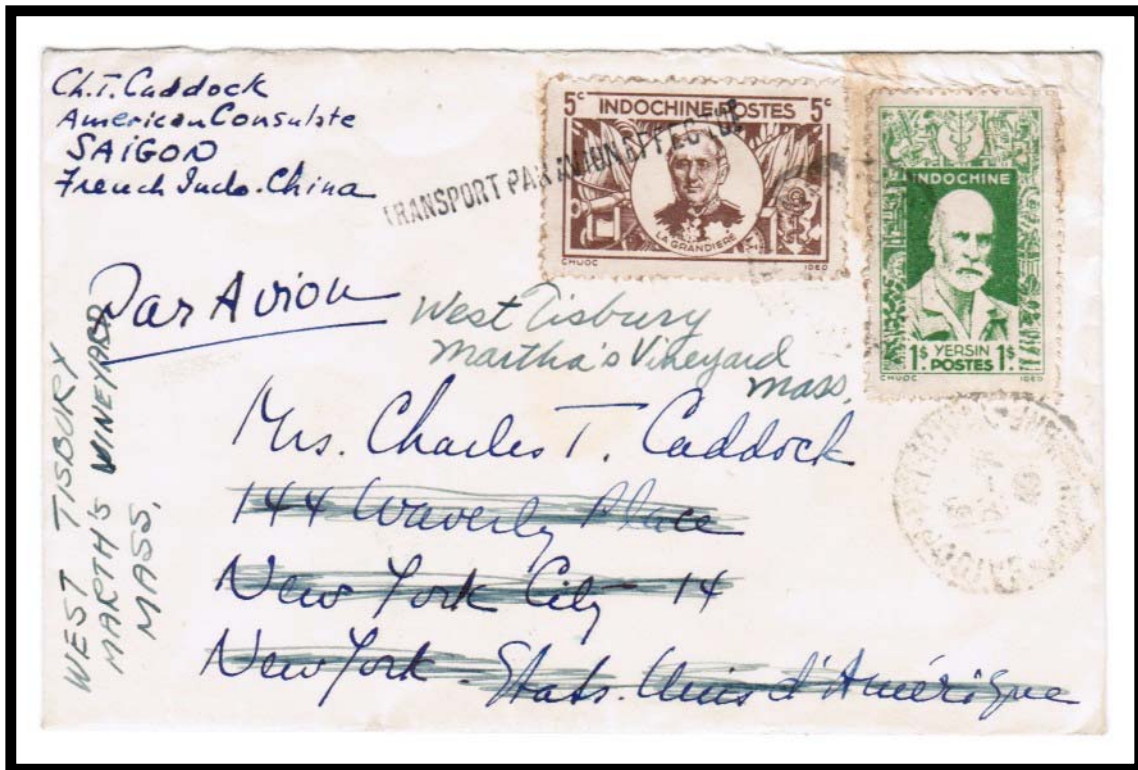 Ch. T. Caddock
American Consulate
SAiGON
French Indo-China
TRANSPORT PAR AVION EFFECTUÉ
5c INDOCHINE POSTES 5c
LA GRANDIERE
CHUOC IDEO
INDOCHINE
1$ YERSIN 1$
POSTES
CHUOC IDEO
Par Avion
West Tisbury
Martha's Vineyard
Mass.
Mrs. Charles T. Caddock
144 Waverly Place
New York City 14
New York. Etats-Unis d'Amérique
WEST TISBURY
MARTH'S VINEYARD
MASS.